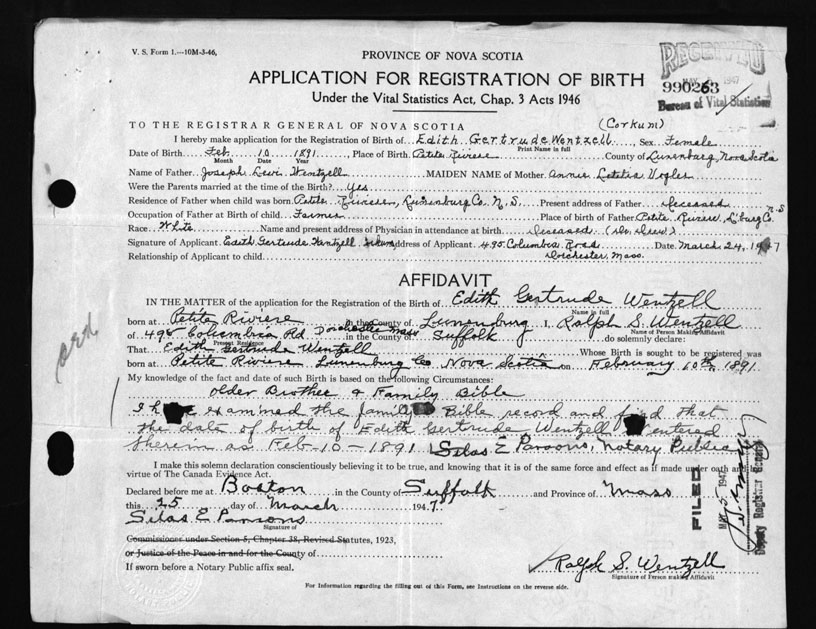 V. S. Form 1.—10M-3-46,
PROVINCE OF NOVA SCOTIA
APPLICATION FOR REGISTRATION OF BIRTH
Under the Vital Statistics Act, Chap. 3 Acts 1946
RECEIVED
MAY 1947
990263
Bureau of Vital Statistics
TO THE REGISTRAR GENERAL OF NOVA SCOTIA (Corkum)
I hereby make application for the Registration of Birth of Edith Gertrude Wentzell Sex Female
Print Name in full
Date of Birth Feb 10 1891 Place of Birth Petite Riviere County of Lunenburg, Nova Scotia
Month Date Year
Name of Father Joseph Levi Wentzell MAIDEN NAME of Mother Annie Letitia Vogler
Were the Parents married at the time of the Birth? Yes
Residence of Father when child was born Petite Riviere, Lunenburg Co. N. S. Present address of Father Deceased
Occupation of Father at Birth of child Farmer Place of birth of Father Petite Riviere, L'burg Co. N-S
Race White Name and present address of Physician in attendance at birth Deceased (Dr. Drew)
Signature of Applicant Edith Gertrude Wentzell Corkum Address of Applicant 495 Columbia Road Date March 24, 1947
Relationship of Applicant to child Dorchester, Mass.
AFFIDAVIT
IN THE MATTER of the application for the Registration of the Birth of Edith Gertrude Wentzell
Name in full
born at Petite Riviere in the County of Lunenburg I, Ralph S. Wentzell
Name of Person Making Affidavit
of 495 Columbia Rd Dorchester Mass in the County of Suffolk do solemnly declare:
Present Residence
That Edith Gertrude Wentzell Whose Birth is sought to be registered was
born at Petite Riviere Lunenburg Co Nova Scotia on February 10th 1891
My knowledge of the fact and date of such Birth is based on the following Circumstances:
older Brother & Family Bible
I have examined the family Bible record and find that
the date of birth of Edith Gertrude Wentzell entered
therein as Feb-10-1891 Silas E Parsons, Notary Public
I make this solemn declaration conscientiously believing it to be true, and knowing that it is of the same force and effect as if made under oath and in
virtue of The Canada Evidence Act.
Declared before me at Boston in the County of Suffolk and Province of Mass
this 25 day of March 1947
Silas E Parsons
Signature of
Commissioner under Section 5, Chapter 38, Revised Statutes, 1923,
or Justice of the Peace in and for the County of
If sworn before a Notary Public affix seal.
Ralph S. Wentzell
Signature of Person making Affidavit
For Information regarding the filling out of this Form, see Instructions on the reverse side.
FILED
MAY 5 1947
Deputy Registrar General